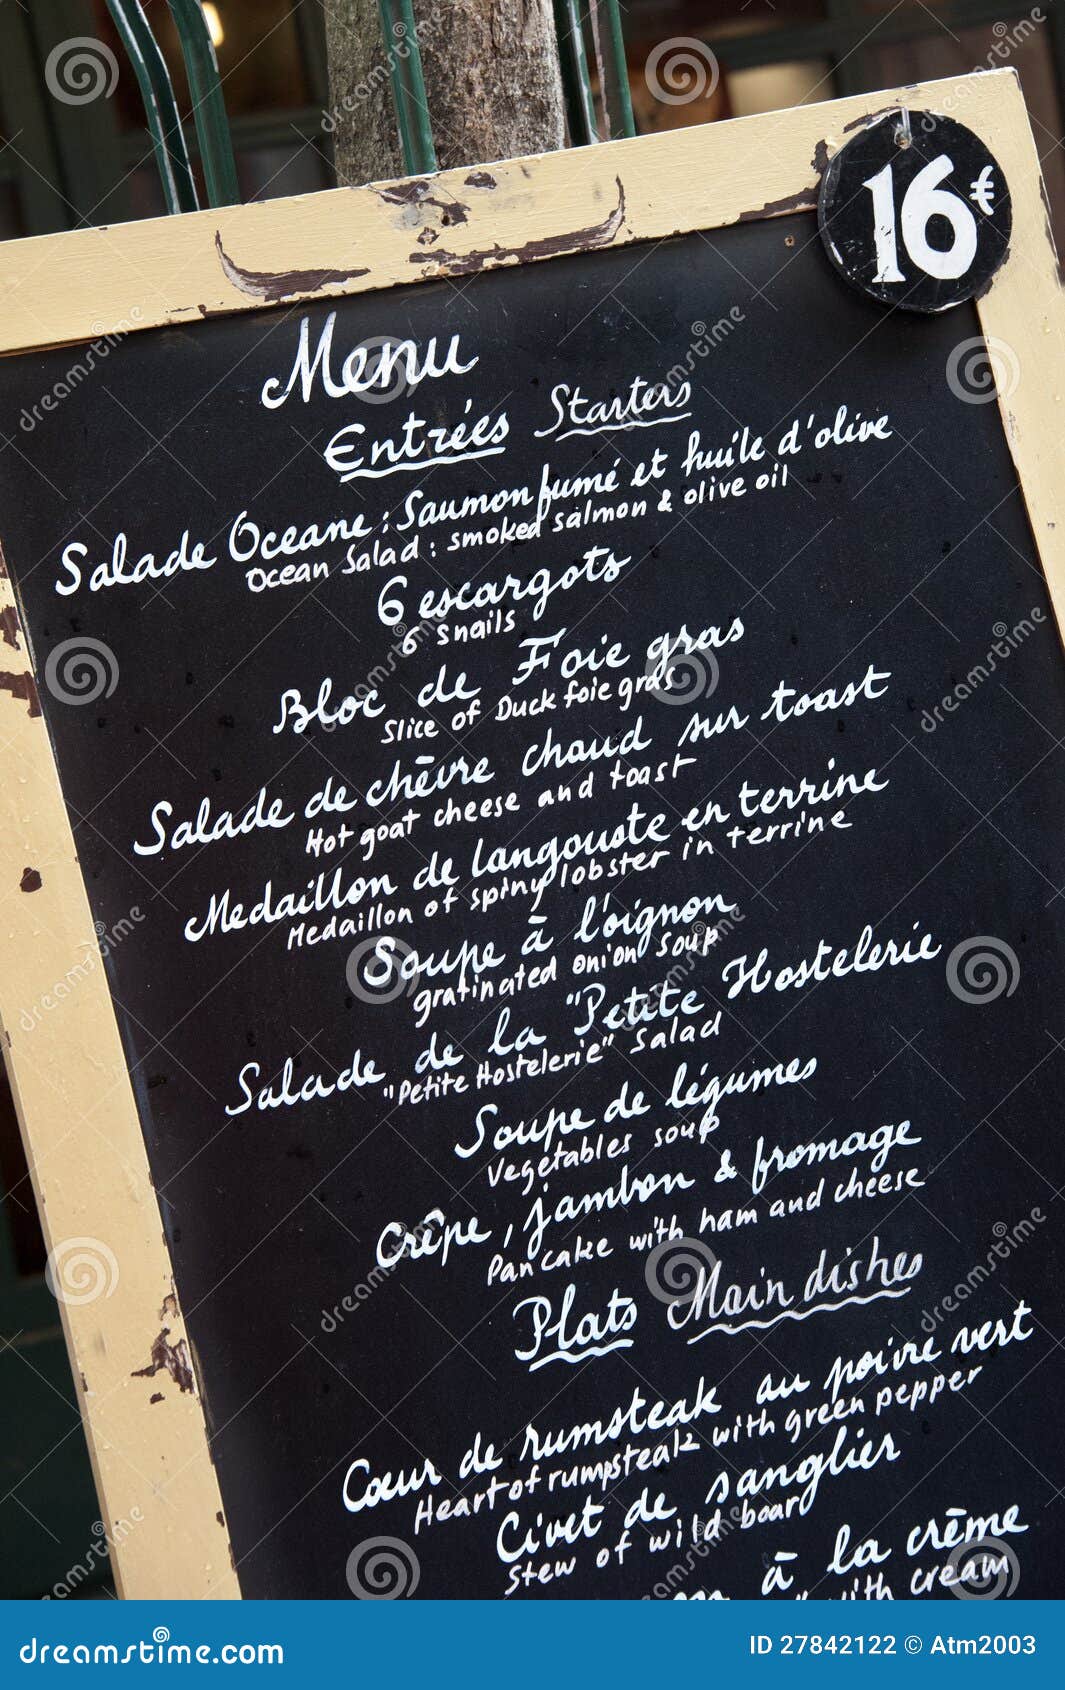 16€
Menu
Entrées Starters
Salade Oceane : Saumon fumé et huile d'olive
Ocean Salad : smoked salmon & olive oil
6 escargots
6 Snails
Bloc de Foie gras
Slice of Duck foie gras
Salade de chèvre chaud sur toast
Hot goat cheese and toast
Medaillon de langouste en terrine
Medaillon of spiny lobster in terrine
Soupe à l'oignon
gratinated onion soup
Salade de la "Petite Hostelerie
"Petite Hostelerie" Salad
Soupe de légumes
Vegetables soup
Crêpe, jambon & fromage
Pancake with ham and cheese
Plats Main dishes
Cœur de rumsteak au poivre vert
Heart of rumpsteak with green pepper
Civet de sanglier
Stew of wild boar
à la crème
with cream
dreamstime.com
ID 27842122 © Atm2003